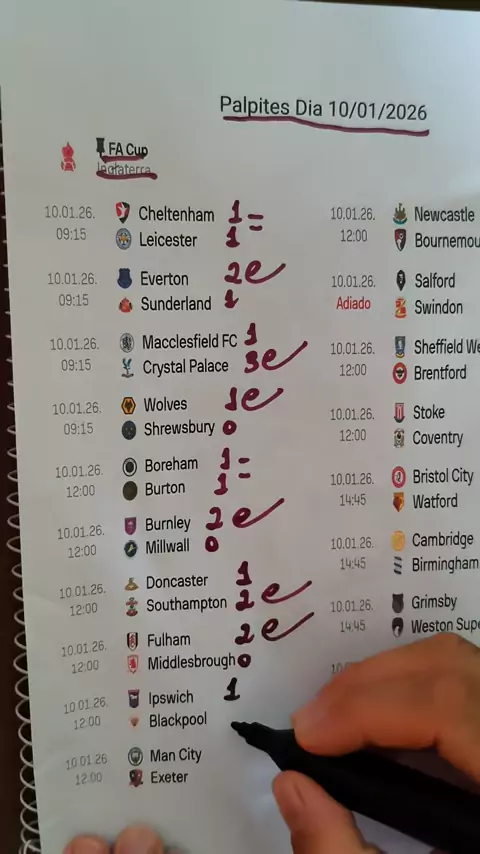 Palpites Dia 10/01/2026
FA Cup
Inglaterra
10.01.26. Cheltenham 1 =
09:15 Leicester 1
10.01.26. Everton 2 e
09:15 Sunderland 1
10.01.26. Macclesfield FC 1
09:15 Crystal Palace 3 e
10.01.26. Wolves 1 e
09:15 Shrewsbury 0
10.01.26. Boreham 1 =
12:00 Burton 1
10.01.26. Burnley 2 e
12:00 Millwall 0
10.01.26. Doncaster 1
12:00 Southampton 2 e
10.01.26. Fulham 2 e
12:00 Middlesbrough 0
10.01.26. Ipswich 1
12:00 Blackpool
10.01.26 Man City
12:00 Exeter
10.01.26. Newcastle
12:00 Bournemou
10.01.26. Salford
Adiado Swindon
10.01.26. Sheffield We
12:00 Brentford
10.01.26. Stoke
12:00 Coventry
10.01.26. Bristol City
14:45 Watford
10.01.26. Cambridge
14:45 Birmingham
10.01.26. Grimsby
14:45 Weston Supe